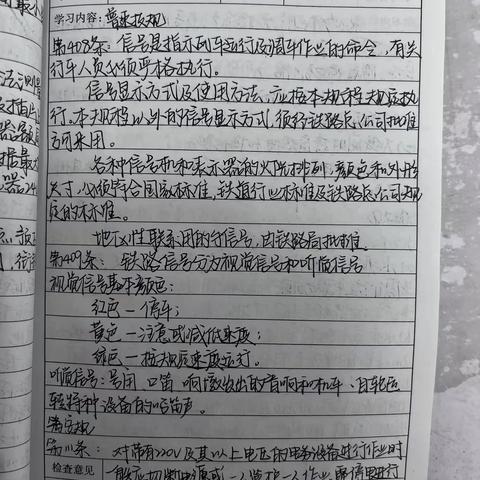 学习内容：普速技规
第408条：信号是指示列车运行及调车作业的命令，有关
行车人员必须严格执行。
信号显示方式及使用方法，应按本规程规定执
行。本规程以外的信号显示方式，须经铁路总公司批准
方可采用。
各种信号机和表示器的灯光排列，颜色和外形
尺寸，必须符合国家标准，铁道行业标准及铁路总公司规
定的标准。
地区性联系用的手信号，由铁路局批准
第409条：铁路信号分为视觉信号和听觉信号
视觉信号基本颜色：
红色—停车；
黄色—注意或减低速度；
绿色—按规定速度运行。
听觉信号：号角、口笛、响墩发出的音响和机车、自轮运
转特种设备的鸣笛声。
第111条：对带有220V及其以上电压的电务设备进行作业时
检查意见
一般应切断电源或一人监护一人作业